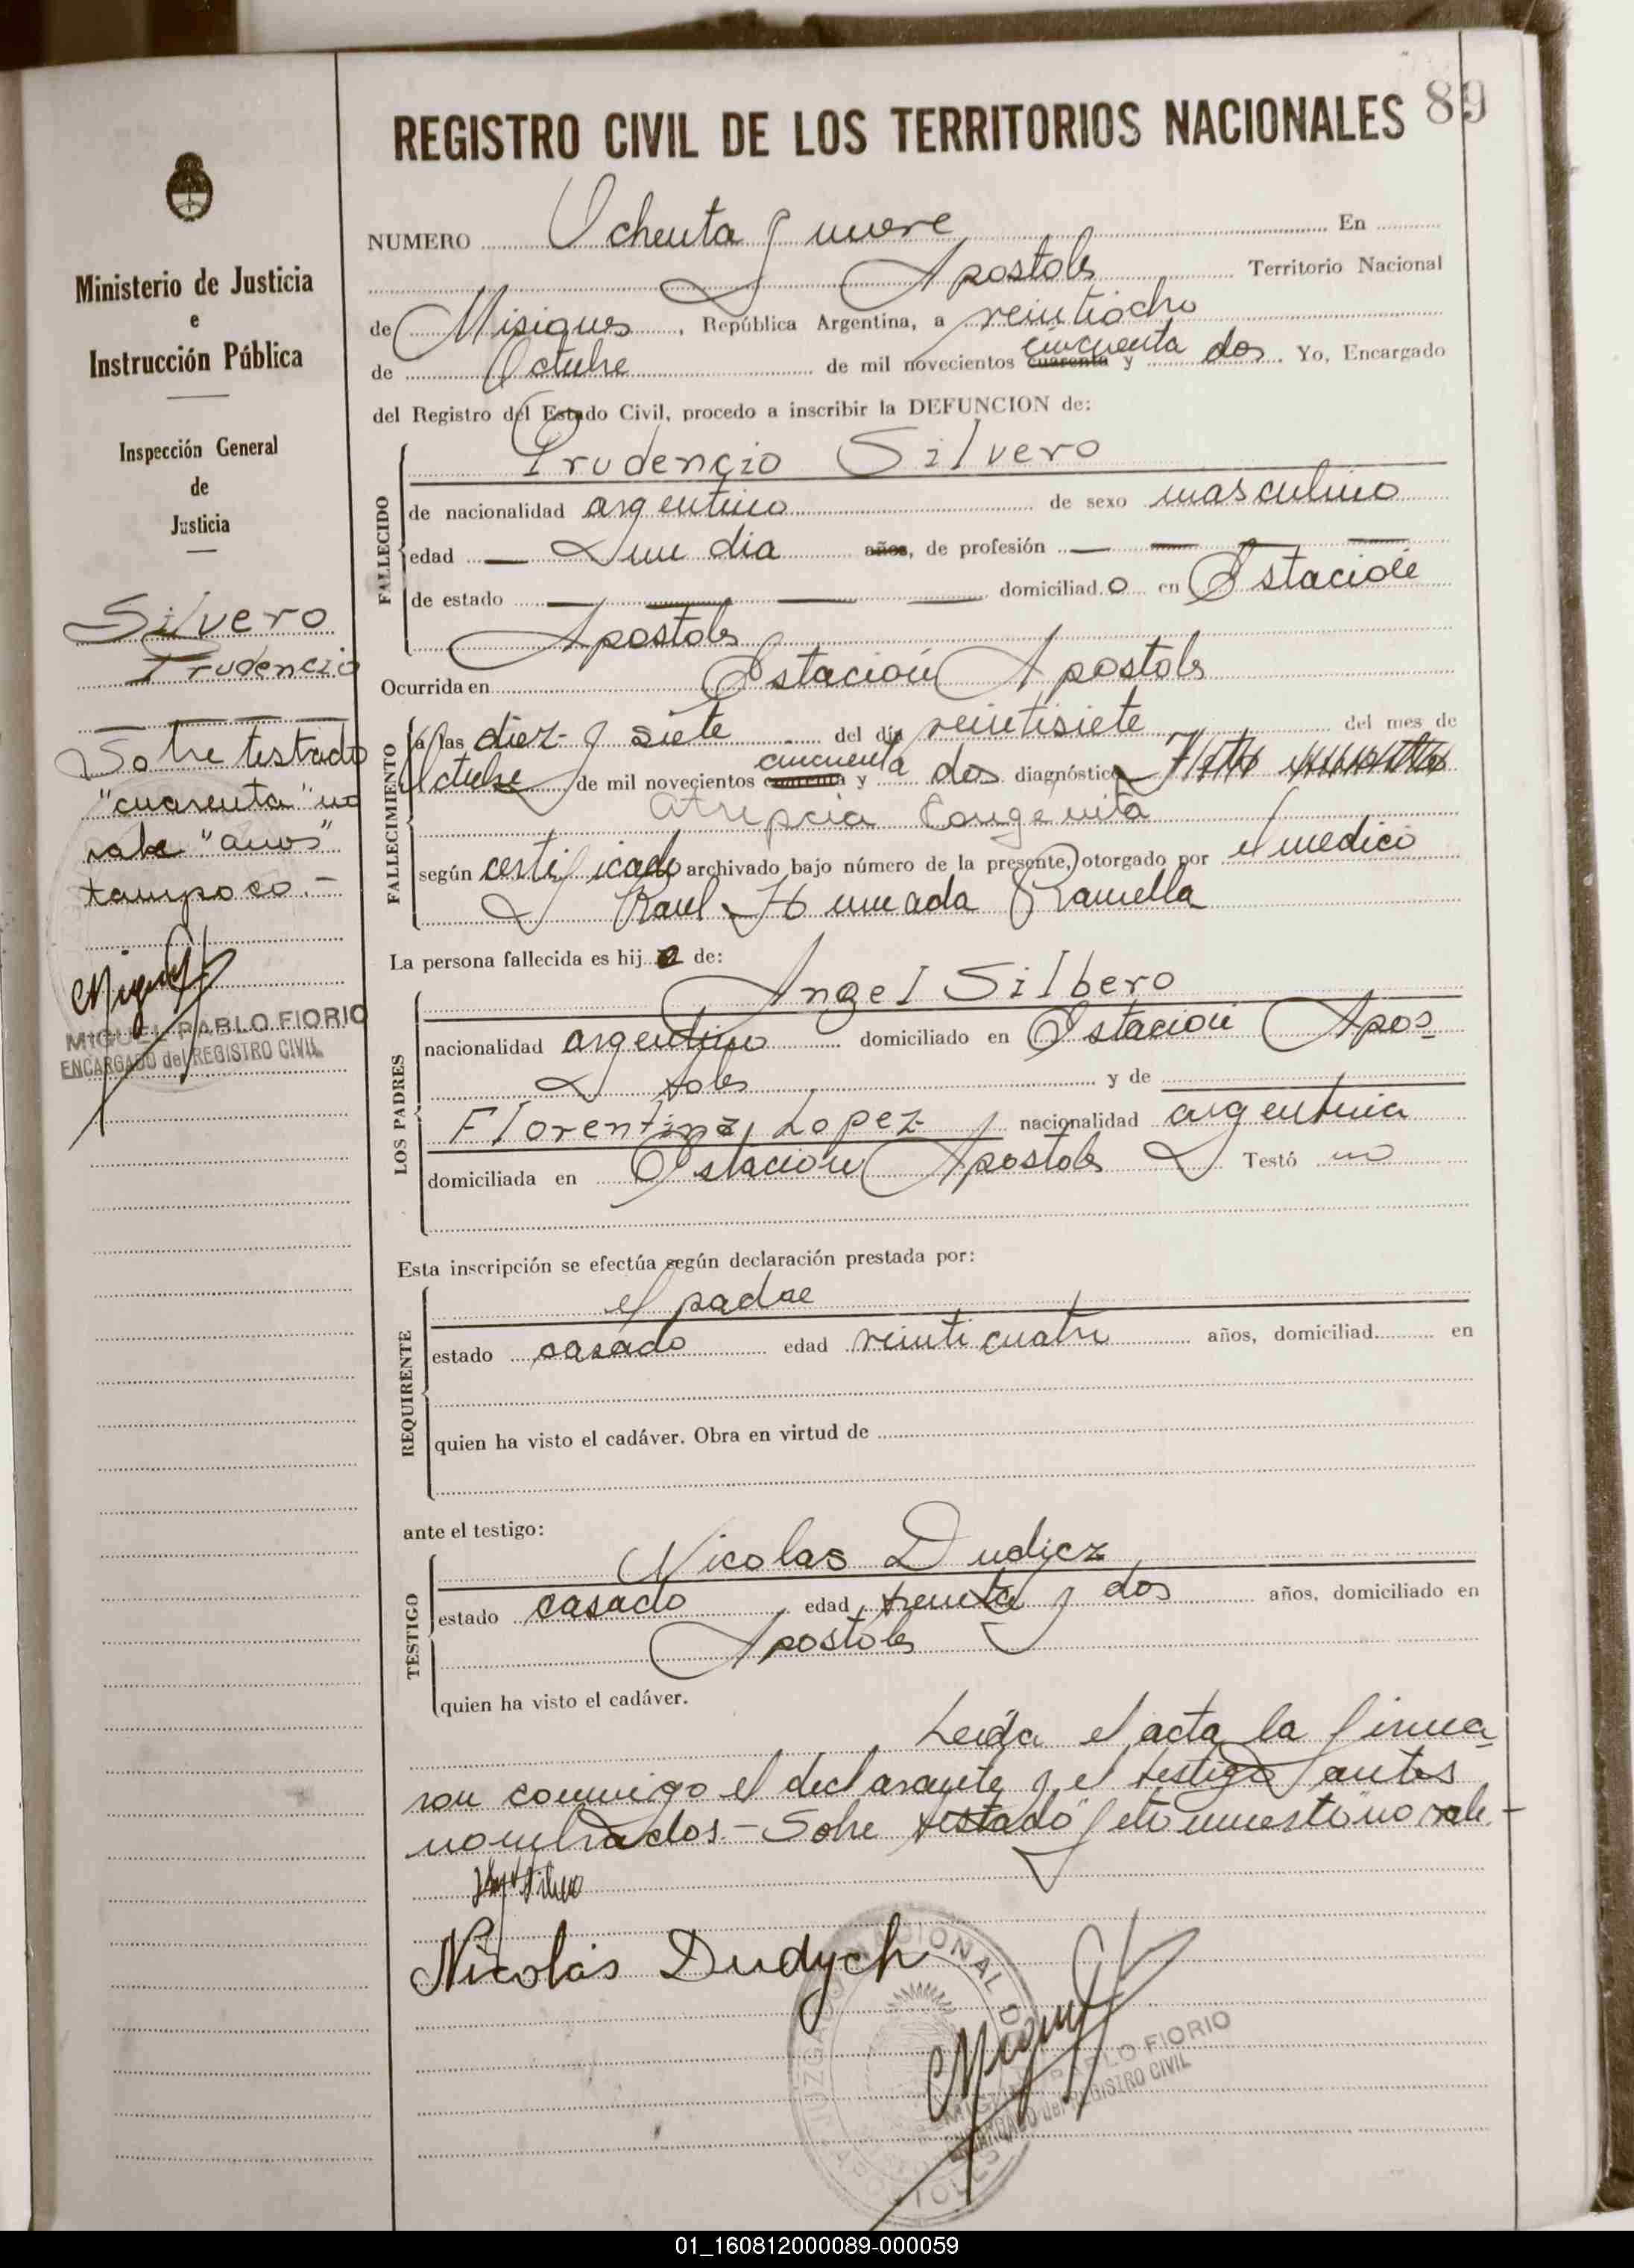 89
REGISTRO CIVIL DE LOS TERRITORIOS NACIONALES
Ministerio de Justicia
e
Instrucción Pública
Inspección General
de
Justicia
Silvero
Prudencio
Sobre testado
"cuarenta" no
vale "años"
tampoco.-
MIGUEL PABLO FIORIO
ENCARGADO del REGISTRO CIVIL
NUMERO Ochenta y nueve En
Apostoles Territorio Nacional
de Misiones, República Argentina, a veintiocho
de Octubre de mil novecientos cuarenta cincuenta y dos. Yo, Encargado
del Registro del Estado Civil, procedo a inscribir la DEFUNCION de:
FALLECIDO
Prudencio Silvero
de nacionalidad argentino de sexo masculino
edad — un dia años, de profesión — — — —
de estado — — — — domiciliado en Estación
Apostoles
Ocurrida en Estación Apostoles
FALLECIMIENTO
a las diez y siete del día veintisiete del mes de
Octubre de mil novecientos cuarenta cincuenta y dos diagnóstico Feto muerto
atrepcia Congenita
según certificado archivado bajo número de la presente, otorgado por el medico
Raul Humada Ramella
La persona fallecida es hijo de:
LOS PADRES
Angel Silbero
nacionalidad argentino domiciliado en Estación Apos=
toles y de
Florentina Lopez nacionalidad argentina
domiciliada en Estación Apostoles Testó no
Esta inscripción se efectúa según declaración prestada por:
REQUIRENTE
el padre
estado casado edad veinticuatro años, domiciliad en
quien ha visto el cadáver. Obra en virtud de
ante el testigo:
TESTIGO
Nicolas Dudicz
estado casado edad treinta y dos años, domiciliado en
Apostoles
quien ha visto el cadáver.
Leída el acta la firma=
ron conmigo el declarante y el testigo antes
nombrados.- Sobre testado "feto muerto" no vale.-
Nicolás Dudych
JUZGADO NACIONAL DE
APOSTOLES
MIGUEL PABLO FIORIO
ENCARGADO del REGISTRO CIVIL
01_160812000089-000059